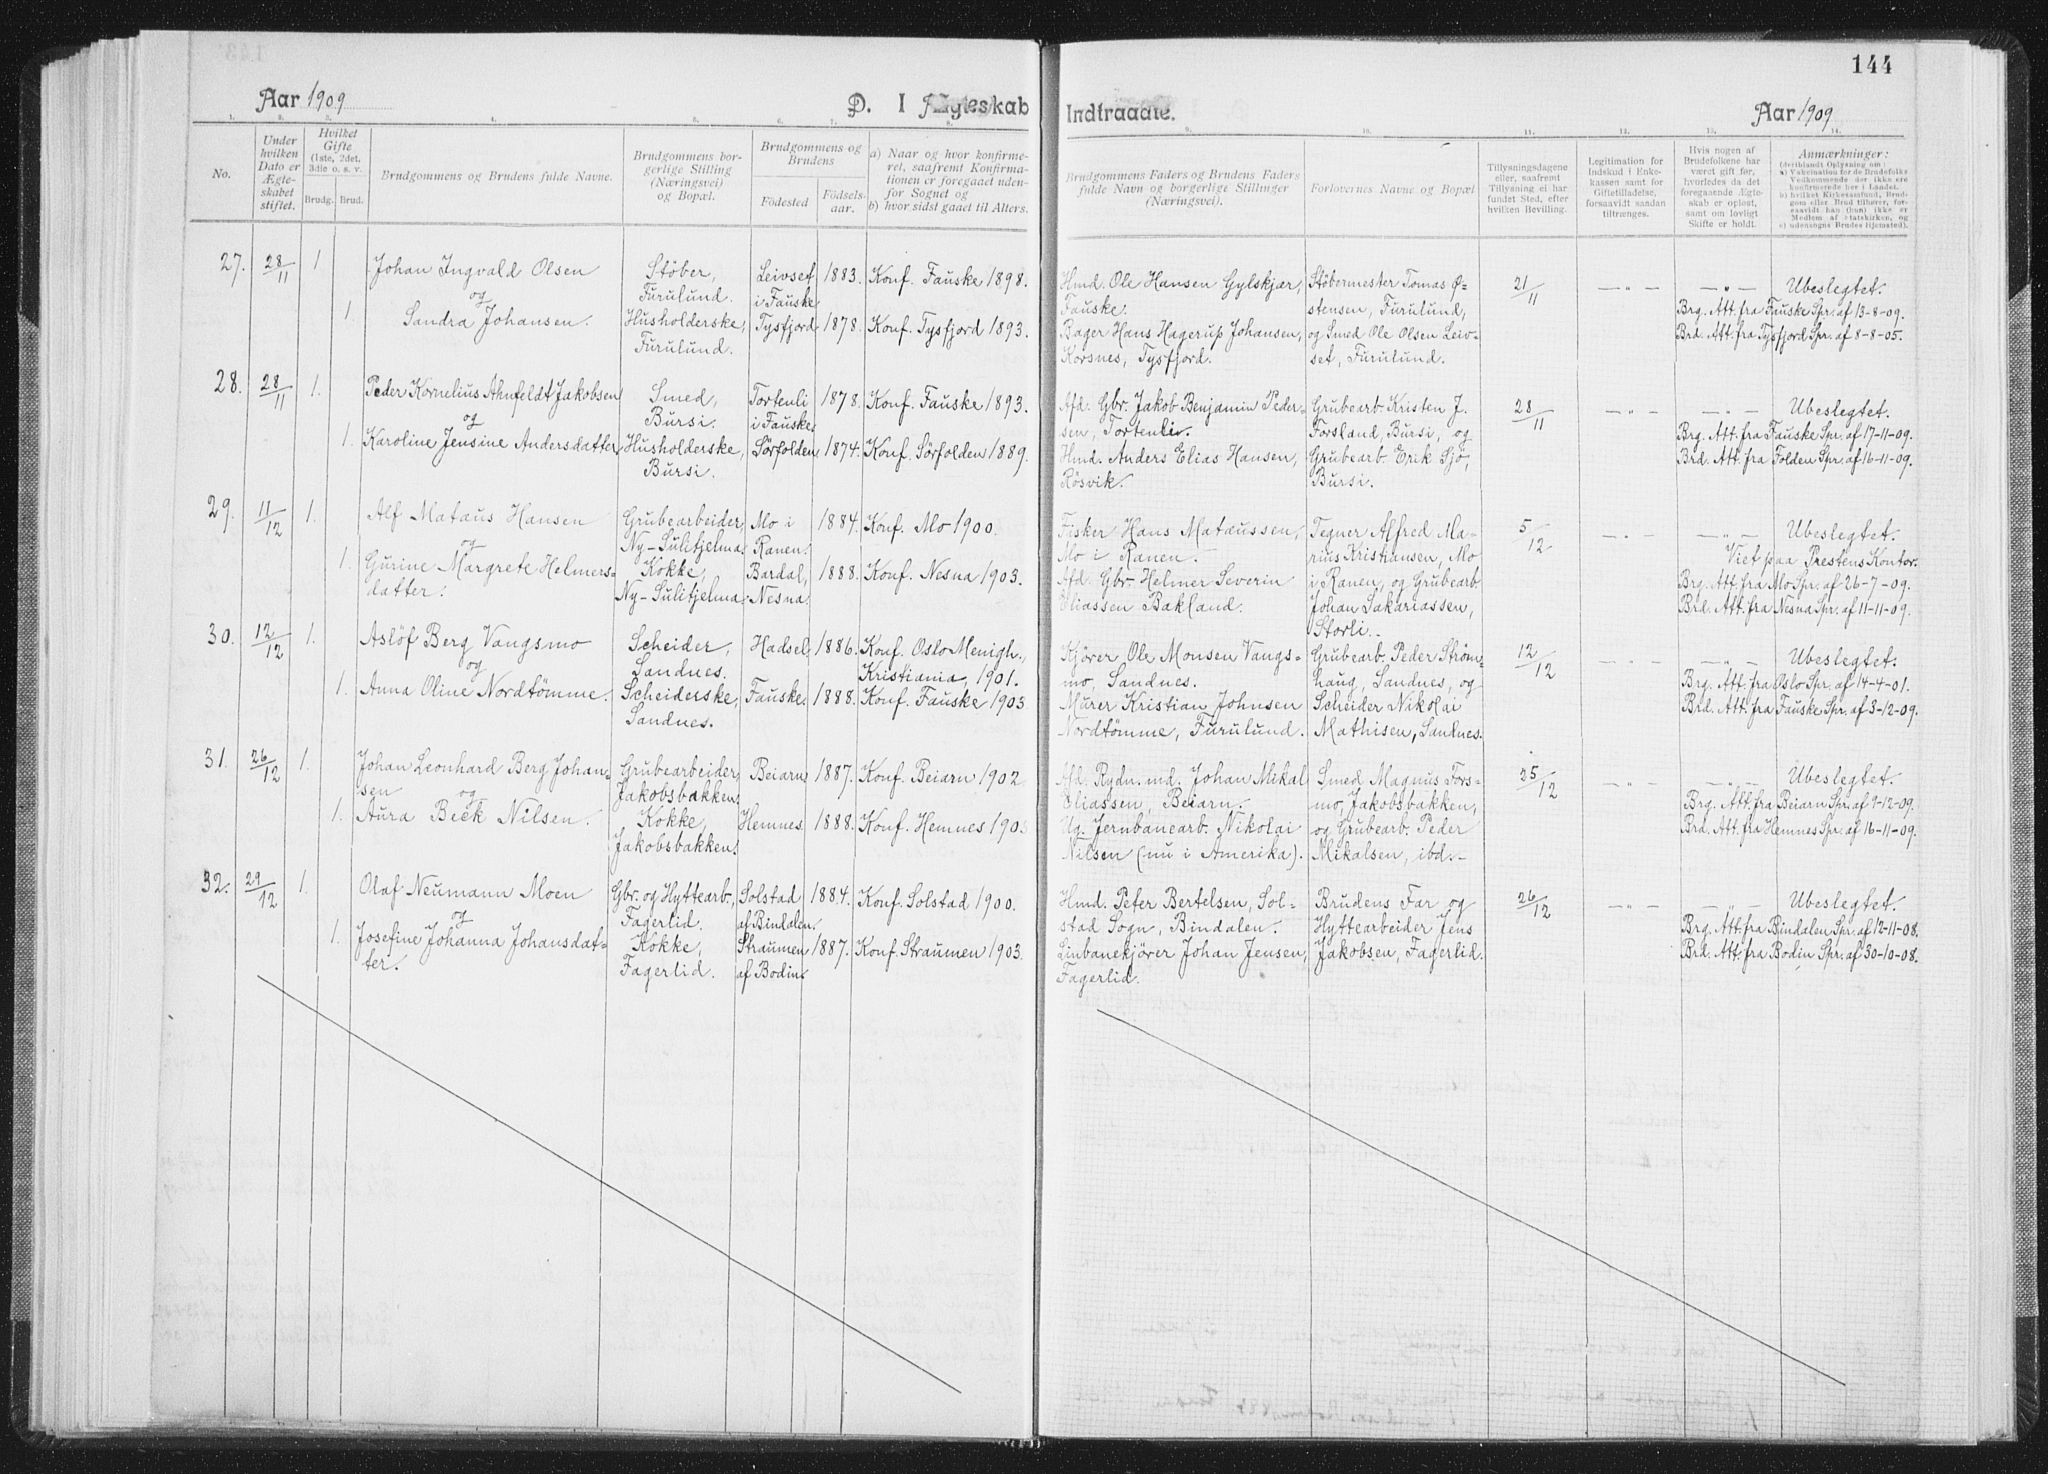 144
Aar 1909
D. I Ægteskab Indtraadte.
Aar 1909
1. 2. 3. 4. 5. 6. 7. 8. 9. 10. 11. 12. 13. 14.
No.
Under hvilken Dato er Ægteskabet stiftet.
Hvilket Gifte (1ste, 2det, 3die o. s. v.
Brudg. Brud.
Brudgommens og Brudens fulde Navne.
Brudgommens borgerlige Stilling (Næringsvei) og Bopæl.
Brudgommens og Brudens
Fødested
Fødselsaar.
a) Naar og hvor konfirmeret, saafremt Konfirmationen er foregaaet udenfor Sognet og
b) hvor sidst gaaet til Alters.
Brudgommens Faders og Brudens Faders fulde Navn og borgerlige Stillinger (Næringsvei).
Forlovernes Navne og Bopæl
Tillysningsdagene eller, saafremt Tillysning ei har fundet Sted, efter hvilken Bevilling.
Legitimation for Indskud i Enkekassen samt for Giftetilladelse, forsaavidt saadan tiltrænges.
Hvis nogen af Brudefolkene har været gift før, hvorledes da det foregaaende Ægteskab er opløst, samt om lovligt Skifte er holdt.
Anmærkninger:
27. 28/11 1
Johan Ingvald Olsen
og
1 Sandra Johansen.
Støber,
Furulund.
Husholderske,
Furulund.
Leivset
i Fauske
Tysfjord
1883.
1878.
Konf. Fauske 1898.
Konf. Tysfjord 1893.
Hmd. Ole Hansen Gylskjær,
Fauske.
Bager Hans Hagerup Johansen,
Korsnes, Tysfjord.
Støbermester Tomas Ø-
stensen, Furulund,
og Smed Ole Olsen Leiv-
set, Furulund.
21/11
— „ —
— „ —
Ubeslegtet.
Brg. Att. fra Fauske Spr. af 13-8-09.
Brd. Att. fra Tysfjord Spr. af 8-8-05.
28. 28/11 1.
Peder Kornelius Ahnfeldt Jakobsen
og
1. Karoline Jensine Andersdatter
Smed,
Bursi.
Husholderske,
Bursi.
Tortenli
i Fauske
Sørfolden
1878.
1874.
Konf. Fauske 1893.
Konf. Sørfolden 1889.
Afd. Gbr. Jakob Benjamin Peder-
sen, Tortenli.
Hmd. Anders Elias Hansen,
Røsvik.
Grubearb. Kristen J.
Forsland, Bursi, og
Grubearb. Erik Sjö,
Bursi.
28/11
— „ —
— „ —
Ubeslegtet.
Brg. Att. fra Fauske Spr. af 17-11-09.
Brd. Att. fra Folden Spr. af 16-11-09.
29. 11/12 1.
Alf Mataus Hansen
og
1. Gurine Margrete Helmers-
datter.
Grubearbeider
Ny-Sulitjelma.
Kokke,
Ny-Sulitjelma.
Mo i
Ranen.
Bardal,
Nesna.
1884.
1888.
Konf. Mo 1900.
Konf. Nesna 1903.
Fisker Hans Matæussen,
Mo i Ranen.
Afd. Gbr. Helmer Severin
Eliassen Bakland.
Tegner Alfred Ma-
rius Kristiansen, Mo
i Ranen, og Grubearb.
Johan Sakariassen,
Storli.
5/12
— „ —
— „ —
Ubeslegtet.
Viet paa Prestens Kontor.
Brg. Att. fra Mo Spr. af 26-7-09.
Brd. Att. fra Nesna Spr. af 11-11-09.
30. 12/12 1.
Asløf Berg Vangsmo
og
1. Anna Oline Nordtømme.
Scheider,
Sandnes.
Scheiderske,
Sandnes.
Hadsel.
Fauske.
1886.
1888.
Konf. Oslo Menigh.,
Kristiania 1901.
Konf. Fauske 1903
Kjører Ole Monsen Vangs-
mo, Sandnes.
Murer Kristian Johnsen
Nordtømme, Furulund.
Grubearb. Peder Strøm-
haug, Sandnes, og
Scheider Nikolai
Mathisen, Sandnes.
12/12
— „ —
— „ —
Ubeslegtet.
Brg. Att. fra Oslo Spr. af 14-4-01.
Brd. Att. fra Fauske Spr. af 3-12-09.
31. 26/12 1.
Johan Leonhard Berg Johan-
sen og
1. Aura Beck Nilsen.
Grubearbeider
Jakobsbakken.
Kokke,
Jakobsbakken.
Beiarn
Hemnes
1887.
1888.
Konf. Beiarn 1902
Konf. Hemnes 1903
Afd. Rydn.md. Johan Mikal
Eliassen, Beiarn.
Ug. Jernbanearb. Nikolai
Nilsen (nu i Amerika).
Smed Magnus Fors-
mo, Jakobsbakken,
og Grubearb. Peder
Mikalsen, ibd.
25/12
— „ —
— „ —
Ubeslegtet.
Brg. Att. fra Beiarn Spr. af 9-12-09.
Brd. Att. fra Hemnes Spr. af 16-11-09.
32. 29/12 1.
Olaf Neumann Moen
og
1. Josefine Johanna Johansdat-
ter.
Gbr. og Hyttearb.,
Fagerlid.
Kokke,
Fagerlid.
Solstad
af Bindalen.
Straumen
af Bodin.
1884.
1887.
Konf. Solstad 1900.
Konf. Straumen 1903.
Hmd. Peter Bertelsen, Sol-
stad Sogn, Bindalen.
Linbanekjører Johan Jensen,
Fagerlid.
Brudens Far og
Hyttearbeider Jens
Jakobsen, Fagerlid.
26/12
— „ —
— „ —
Ubeslegtet.
Brg. Att. fra Bindalen Spr. af 12-11-08.
Brd. Att. fra Bodin Spr. af 30-10-08.